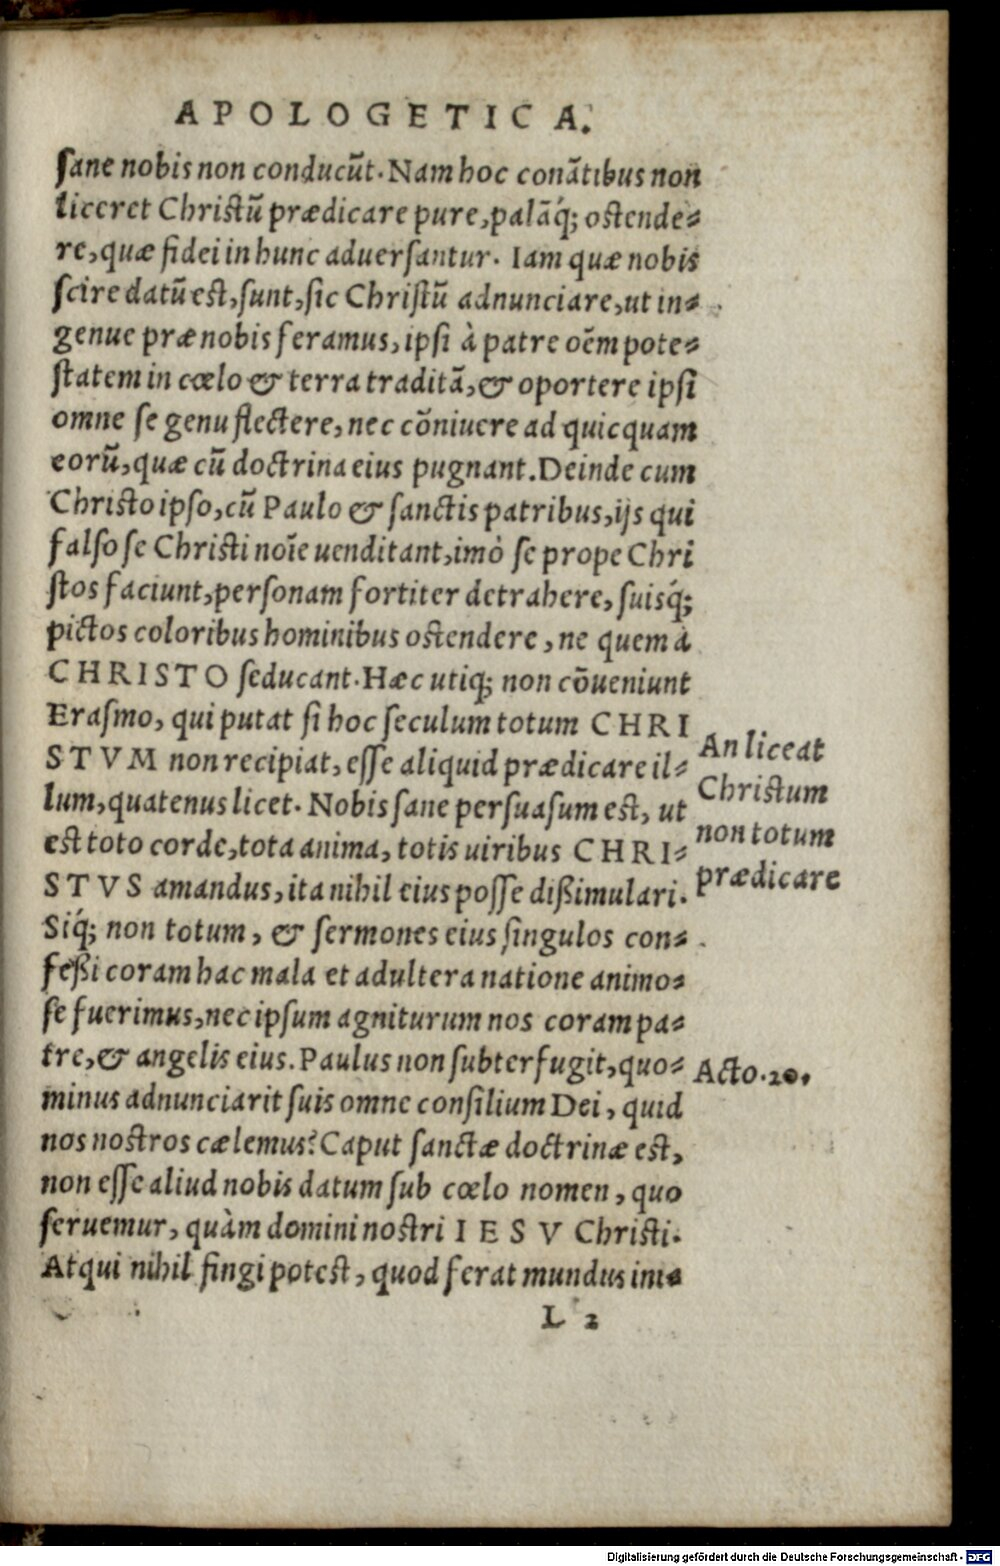 APOLOGETICA.
sane nobis non conducūt. Nam hoc conātibus non
liceret Christū prædicare pure, palāq́; ostende-
re, quæ fidei in hunc aduersantur. Iam quæ nobis
scire datū est, sunt, sic Christū adnunciare, ut in-
genue præ nobis feramus, ipsi à patre oēm pote-
statem in cœlo & terra traditā, & oportere ipsi
omne se genu flectere, nec cōniuere ad quicquam
eorū, quæ cū doctrina eius pugnant. Deinde cum
Christo ipso, cū Paulo & sanctis patribus, ijs qui
falso se Christi noīe uenditant, imò se prope Chri
stos faciunt, personam fortiter detrahere, suisq́;
pictos coloribus hominibus ostendere, ne quem à
CHRISTO seducant. Hæc utiq; non cōueniunt
Erasmo, qui putat si hoc seculum totum CHRI
STVM non recipiat, esse aliquid prædicare il-
lum, quatenus licet. Nobis sane persuasum est, ut
est toto corde, tota anima, totis uiribus CHRI-
STVS amandus, ita nihil eius posse dißimulari.
Siq́; non totum, & sermones eius singulos con-
feßi coram hac mala et adultera natione animo-
se fuerimus, nec ipsum agniturum nos coram pa-
tre, & angelis eius. Paulus non subterfugit, quo-
minus adnunciarit suis omne consilium Dei, quid
nos nostros cælemus? Caput sanctæ doctrinæ est,
non esse aliud nobis datum sub cœlo nomen, quo
seruemur, quàm domini nostri IESV Christi.
Atqui nihil fingi potest, quod ferat mundus im-
L 2
An liceat
Christum
non totum
prædicare
Acto. 20.
Digitalisierung gefördert durch die Deutsche Forschungsgemeinschaft - DFG